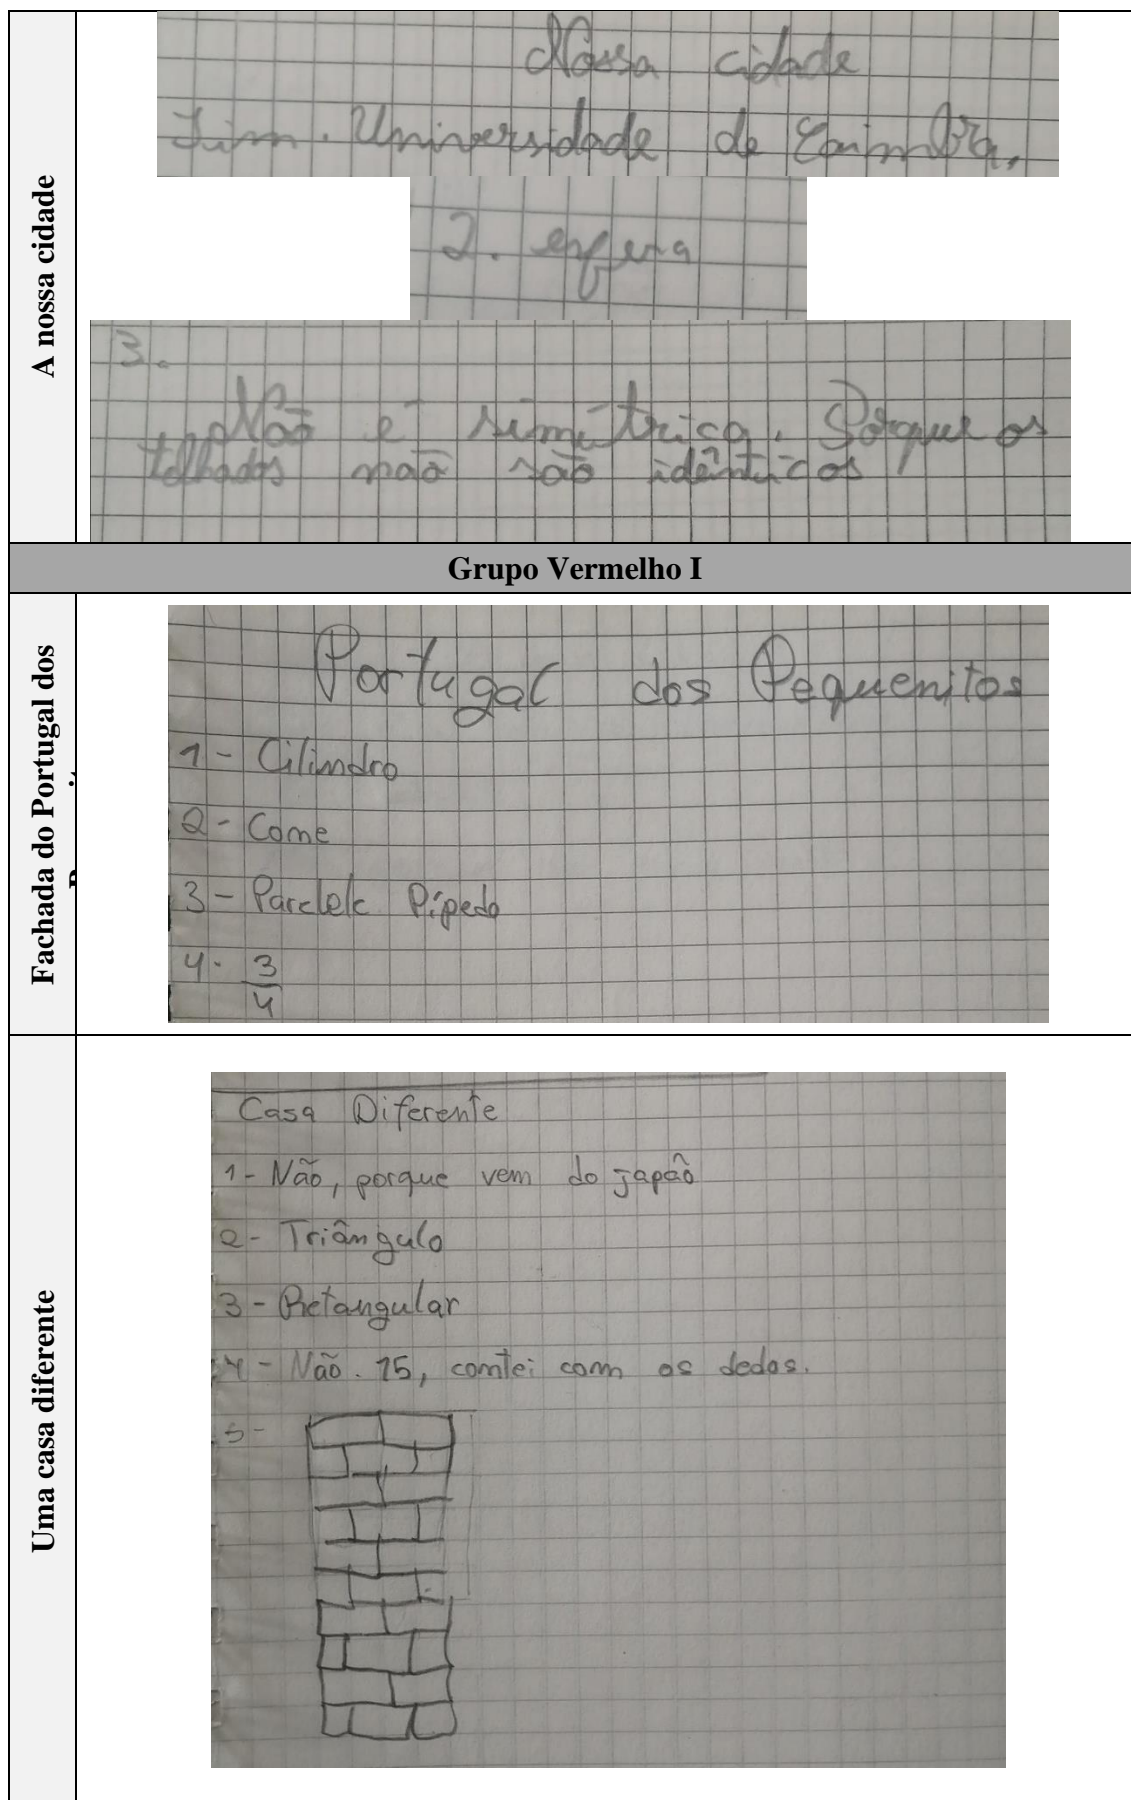 A nossa cidade
Nossa cidade
Sim. Universidade de Coimbra.
2. esfera
3.
Não é simétrica. Porque os
telhados não são idênticos
Grupo Vermelho I
Fachada do Portugal dos
Portugal dos Pequenitos
1 - Cilindro
2 - Cone
3 - Paralele Pípedo
4. 3/4
Uma casa diferente
Casa Diferente
1 - Não, porque vem do japão
2 - Triângulo
3 - Retangular
4 - Não. 15, contei com os dedos.
5 -